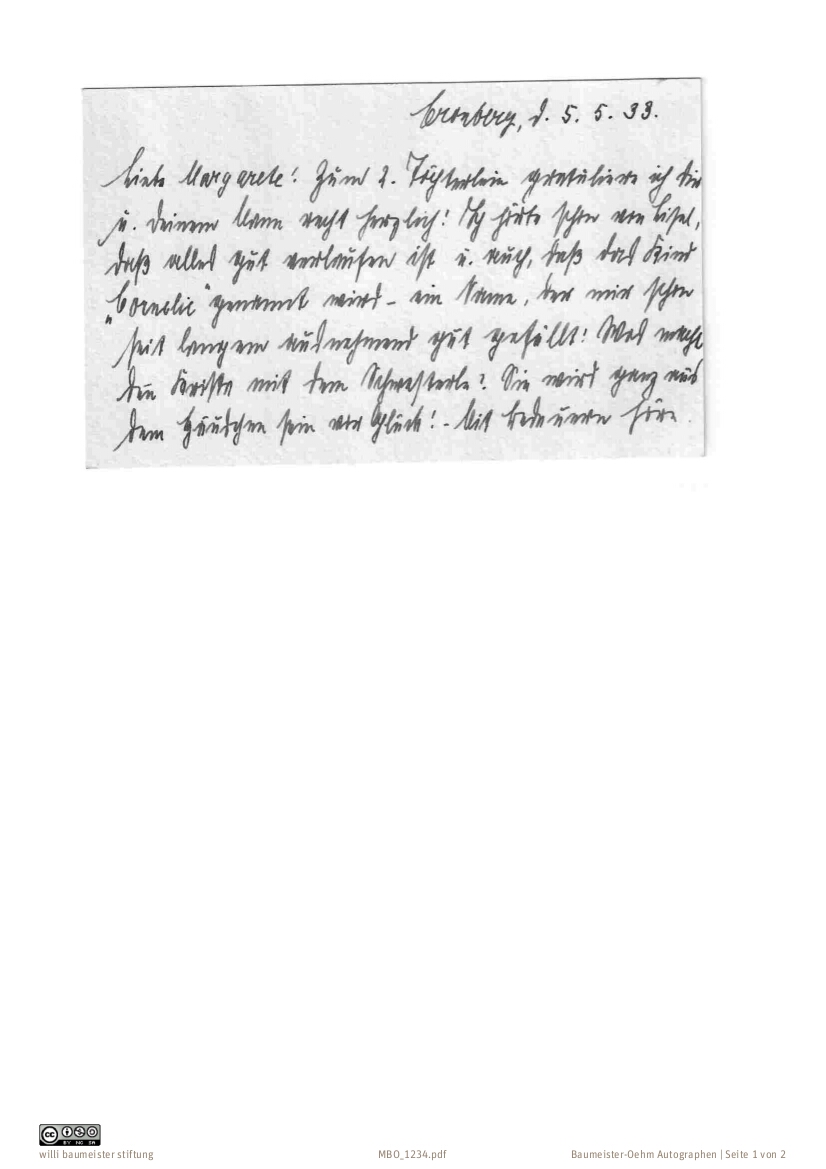 Cronberg, d. 5. 5. 33.
Liebe Margarete! Zum 2. Töchterlein gratuliere ich dir
u. deinem Mann recht herzlich! Ich hörte schon von Lisel,
daß alles gut verlaufen ist u. auch, daß das Kind
„Cornelie" genannt wird – ein Name, der mir schon
seit langem ausnehmend gut gefällt! Was macht
denn Krista mit dem Schwesterle? Sie wird ganz aus
dem Häuschen sein vor Glück! – Mit Bedauern höre
BY NC SA
willi baumeister stiftung
MBO_1234.pdf
Baumeister-Oehm Autographen | Seite 1 von 2